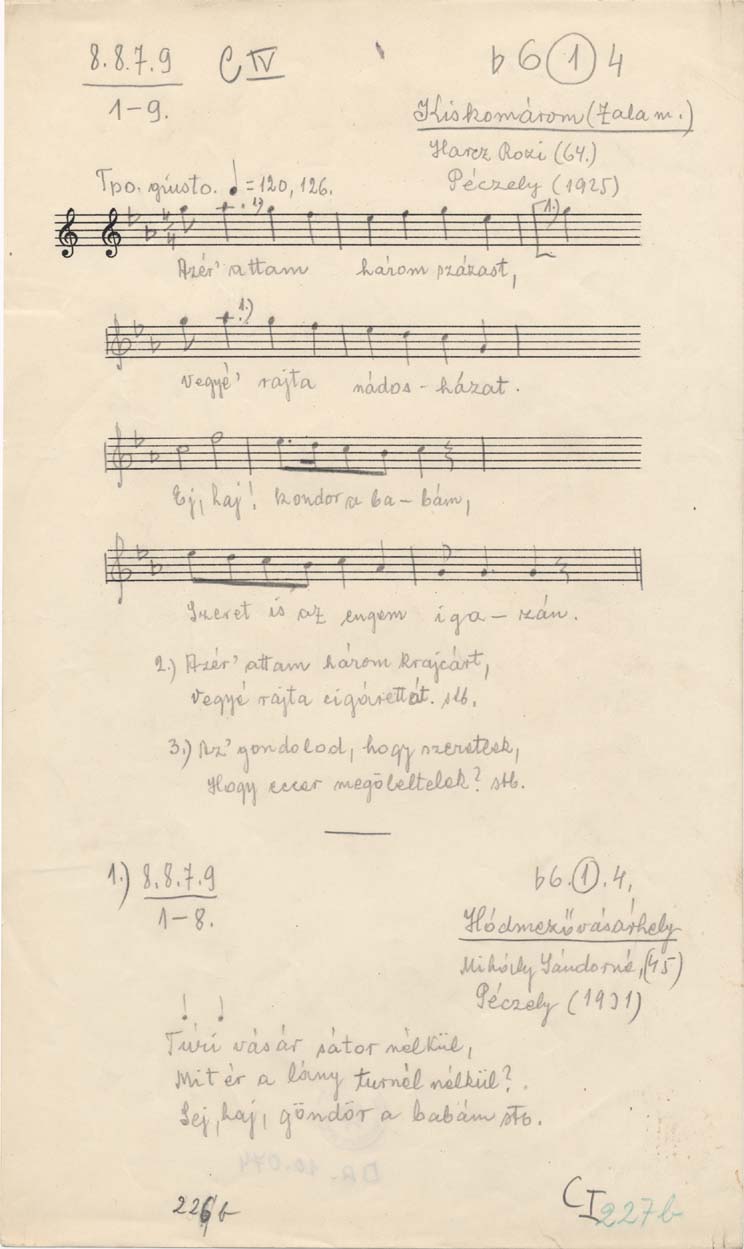 8.8.7.9 C IV ♭6 ① 4
1-9. Kiskomárom (Zala m.)
Harcz Rozi (64.)
Tpo. giusto. ♩=120, 126. Péczely (1925)
1.) 1.)
Azér' attam három százast,
1.)
vegyé' rajta nádos-házat.
Ej, haj! kondor a ba-bám,
Szeret is az engem iga-zán.
2.) Azér' attam három krajcárt,
Vegyé rajta cigárettát. stb.
3.) Az' gondolod, hogy szeretlek,
Hogy eccer megöleltelek? stb.
1.) 8.8.7.9 ♭6.①.4,
1-8. Hódmezővásárhely
Mihály Sándorné, (45)
Péczely (1931)
! !
Túri vásár sátor nélkül,
Mit ér a lány turnél nélkül?
Sej, haj, göndör a babám stb.
DA. 10.074
226b CI 227b